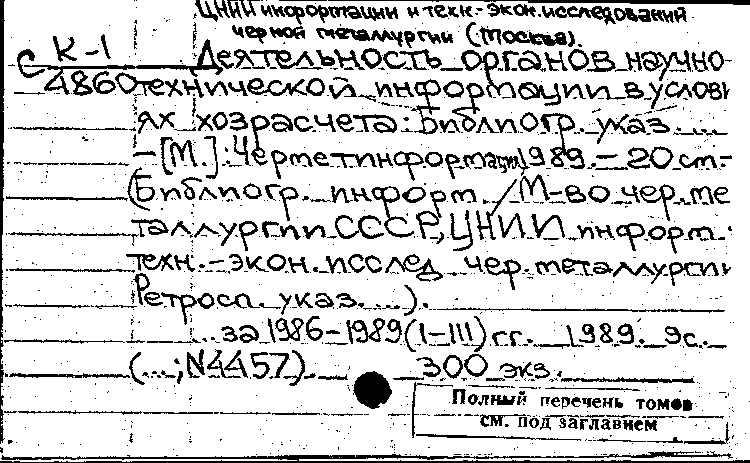 ЦНИИ информации и техн.-экон. исследований
черной металлургии (Москва)
С К-1
4860
Деятельность органов научно-
технической информации в услови
ях хозрасчета: Библиогр. указ. ...
– [М.]: Черметинформация, 1989. – 20 см. –
(Библиогр. информ. / М-во чер. ме
таллургии СССР, ЦНИИ информ. и
техн.-экон. исслед. чер. металлургии
Ретросп. указ. ...).
... за 1986–1989 (I–III) гг. 1989. 9с.
(...; N4457). 300 экз.
Полный перечень томов
см. под заглавием